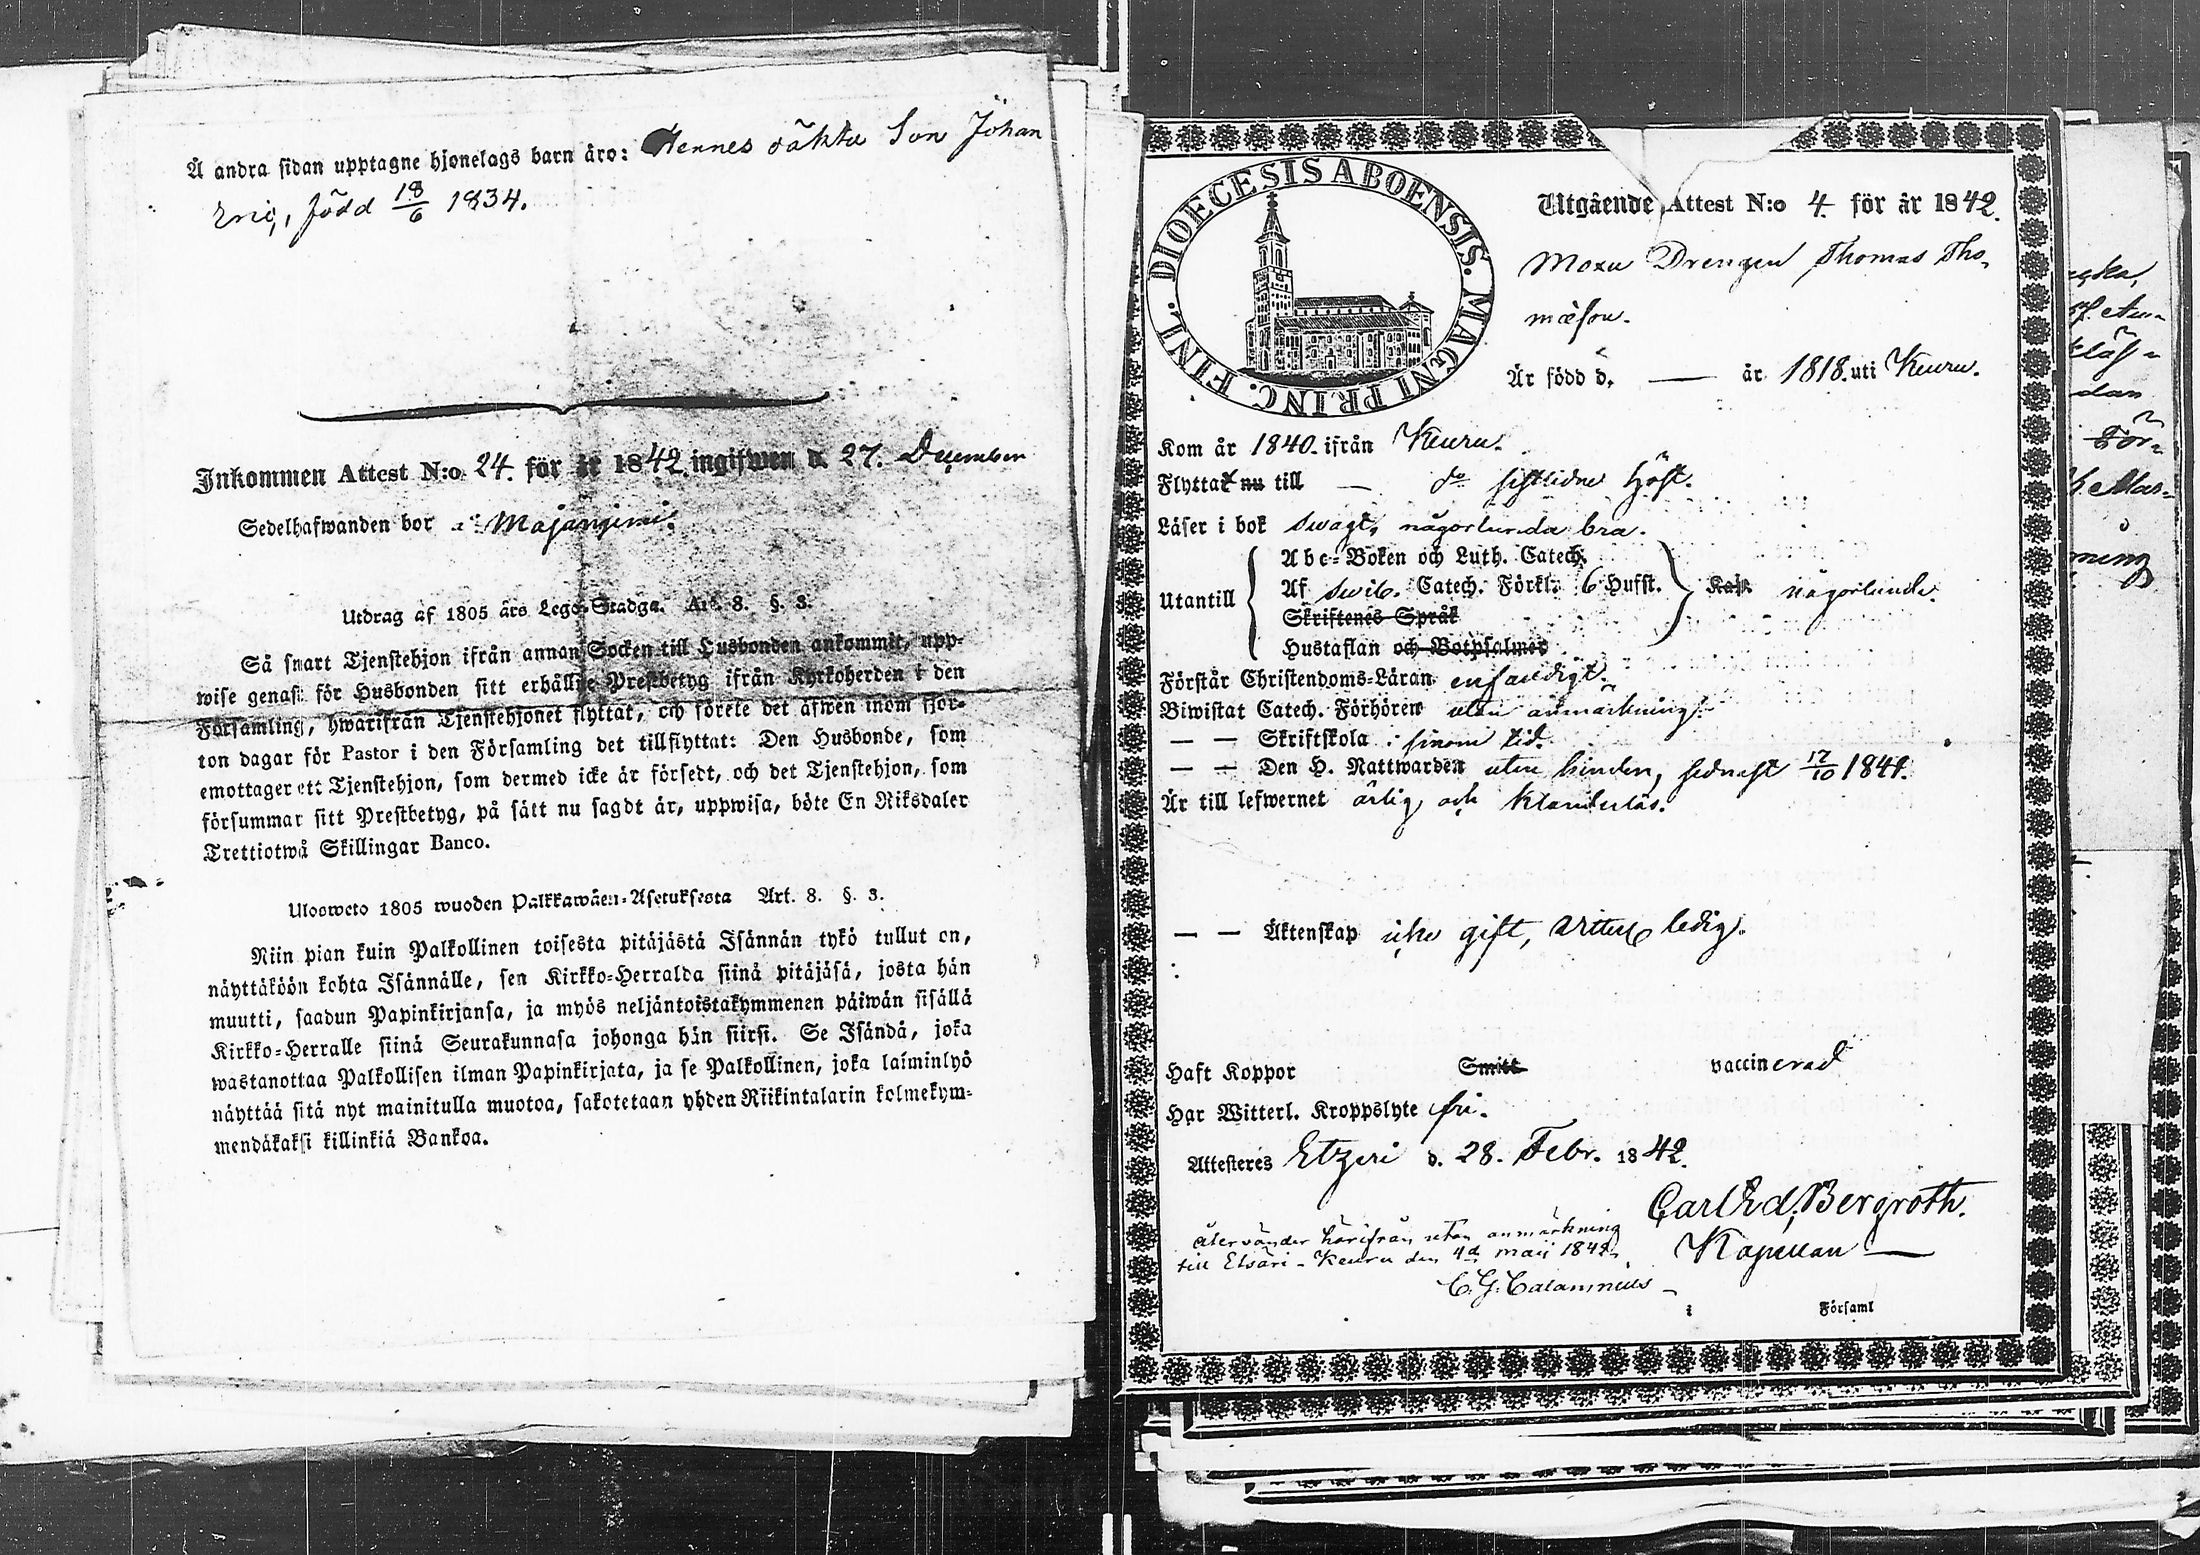 Å andra sidan upptagne hjonelags barn äro: Hennes oäkta Son Johan
Eric, född 18/6 1834.
Inkommen Attest N:o 24. för år 1842 ingifwen d. 27. December
Sedelhafwanden bor
Utdrag af 1805 års Lego-Stadga. Art. 8. §. 3.
Så snart Tjenstehjon ifrån annan Socken till Husbonden ankommit, upp-
wise genast för Husbonden sitt erhållne Prestbetyg ifrån Kyrkoherden i den
Församling, hwarifrån Tjenstehjonet flyttat, och förete det äfwen inom fjor-
ton dagar för Pastor i den Församling det tillflyttat: Den Husbonde, som
emottager ett Tjenstehjon, som dermed icke är försedt, och det Tjenstehjon, som
försummar sitt Prestbetyg, på sätt nu sagdt är, uppwisa, böte En Riksdaler
Trettiotwå Skillingar Banco.
Ulosweto 1805 wuoden Palkkawäen-Asetuksesta Art. 8. §. 3.
Niin pian kuin Palkollinen toisesta pitäjästä Isännän tykö tullut on,
näyttäköön kohta Isännälle, sen Kirkko-Herralda siinä pitäjäsä, josta hän
muutti, saadun Papinkirjansa, ja myös neljäntoistakymmenen päiwän sisällä
Kirkko-Herralle siinä Seurakunnasa johonga hän siirsi. Se Isändä, joka
wastanottaa Palkollisen ilman Papinkirjata, ja se Palkollinen, joka laiminlyö
näyttää sitä nyt mainitulla muotoa, sakotetaan yhden Riikintalarin kolmekym-
mendäkaksi killinkiä Bankoa.
DIOECESIS ABOENSIS. MAGNI PRINC. FINL.
Utgående Attest N:o 4. för år 1842.
Drengen Thomas Tho-
mæson.
Är född d. — år 1818. uti Keuru.
Kom år 1840. ifrån Keuru.
Flyttat nu till — do sistlidne höst.
Läser i bok swagt, någorlunda bra.
Abc-Boken och Luth. Catech.
Utantill Af Swib. Catech. Förkl. 6 Hufst. Kap. någorlunda.
Skriftenes Språk
Hustaflan och Botpsalmer
Förstår Christendoms-Läran enfaldigt.
Biwistat Catech. Förhören utan anmärkning.
— — Skriftskola i sinom tid.
— — Den H. Nattwarden utan hinder, sednast 17/10 1841.
Är till lefwernet ärlig och klanderlös.
— — Äktenskap icke gift, ledig.
Haft Koppor Smitt vaccinerad
Har Witterl. Kroppslyte fri.
Attesteres Etzeri d. 28. Febr. 1842.
Carl Ed. Bergroth.
Kapellan —
återvänder härifrån utan anmärkning
till Etsäri - Keuru den 4d maji 1842.
C. G. Calamnius
i Församl